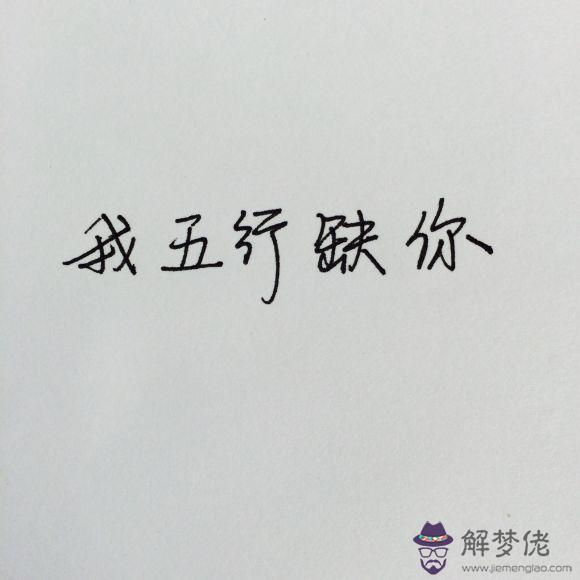 我五行缺你
解梦佬
www.jiemenglao.com